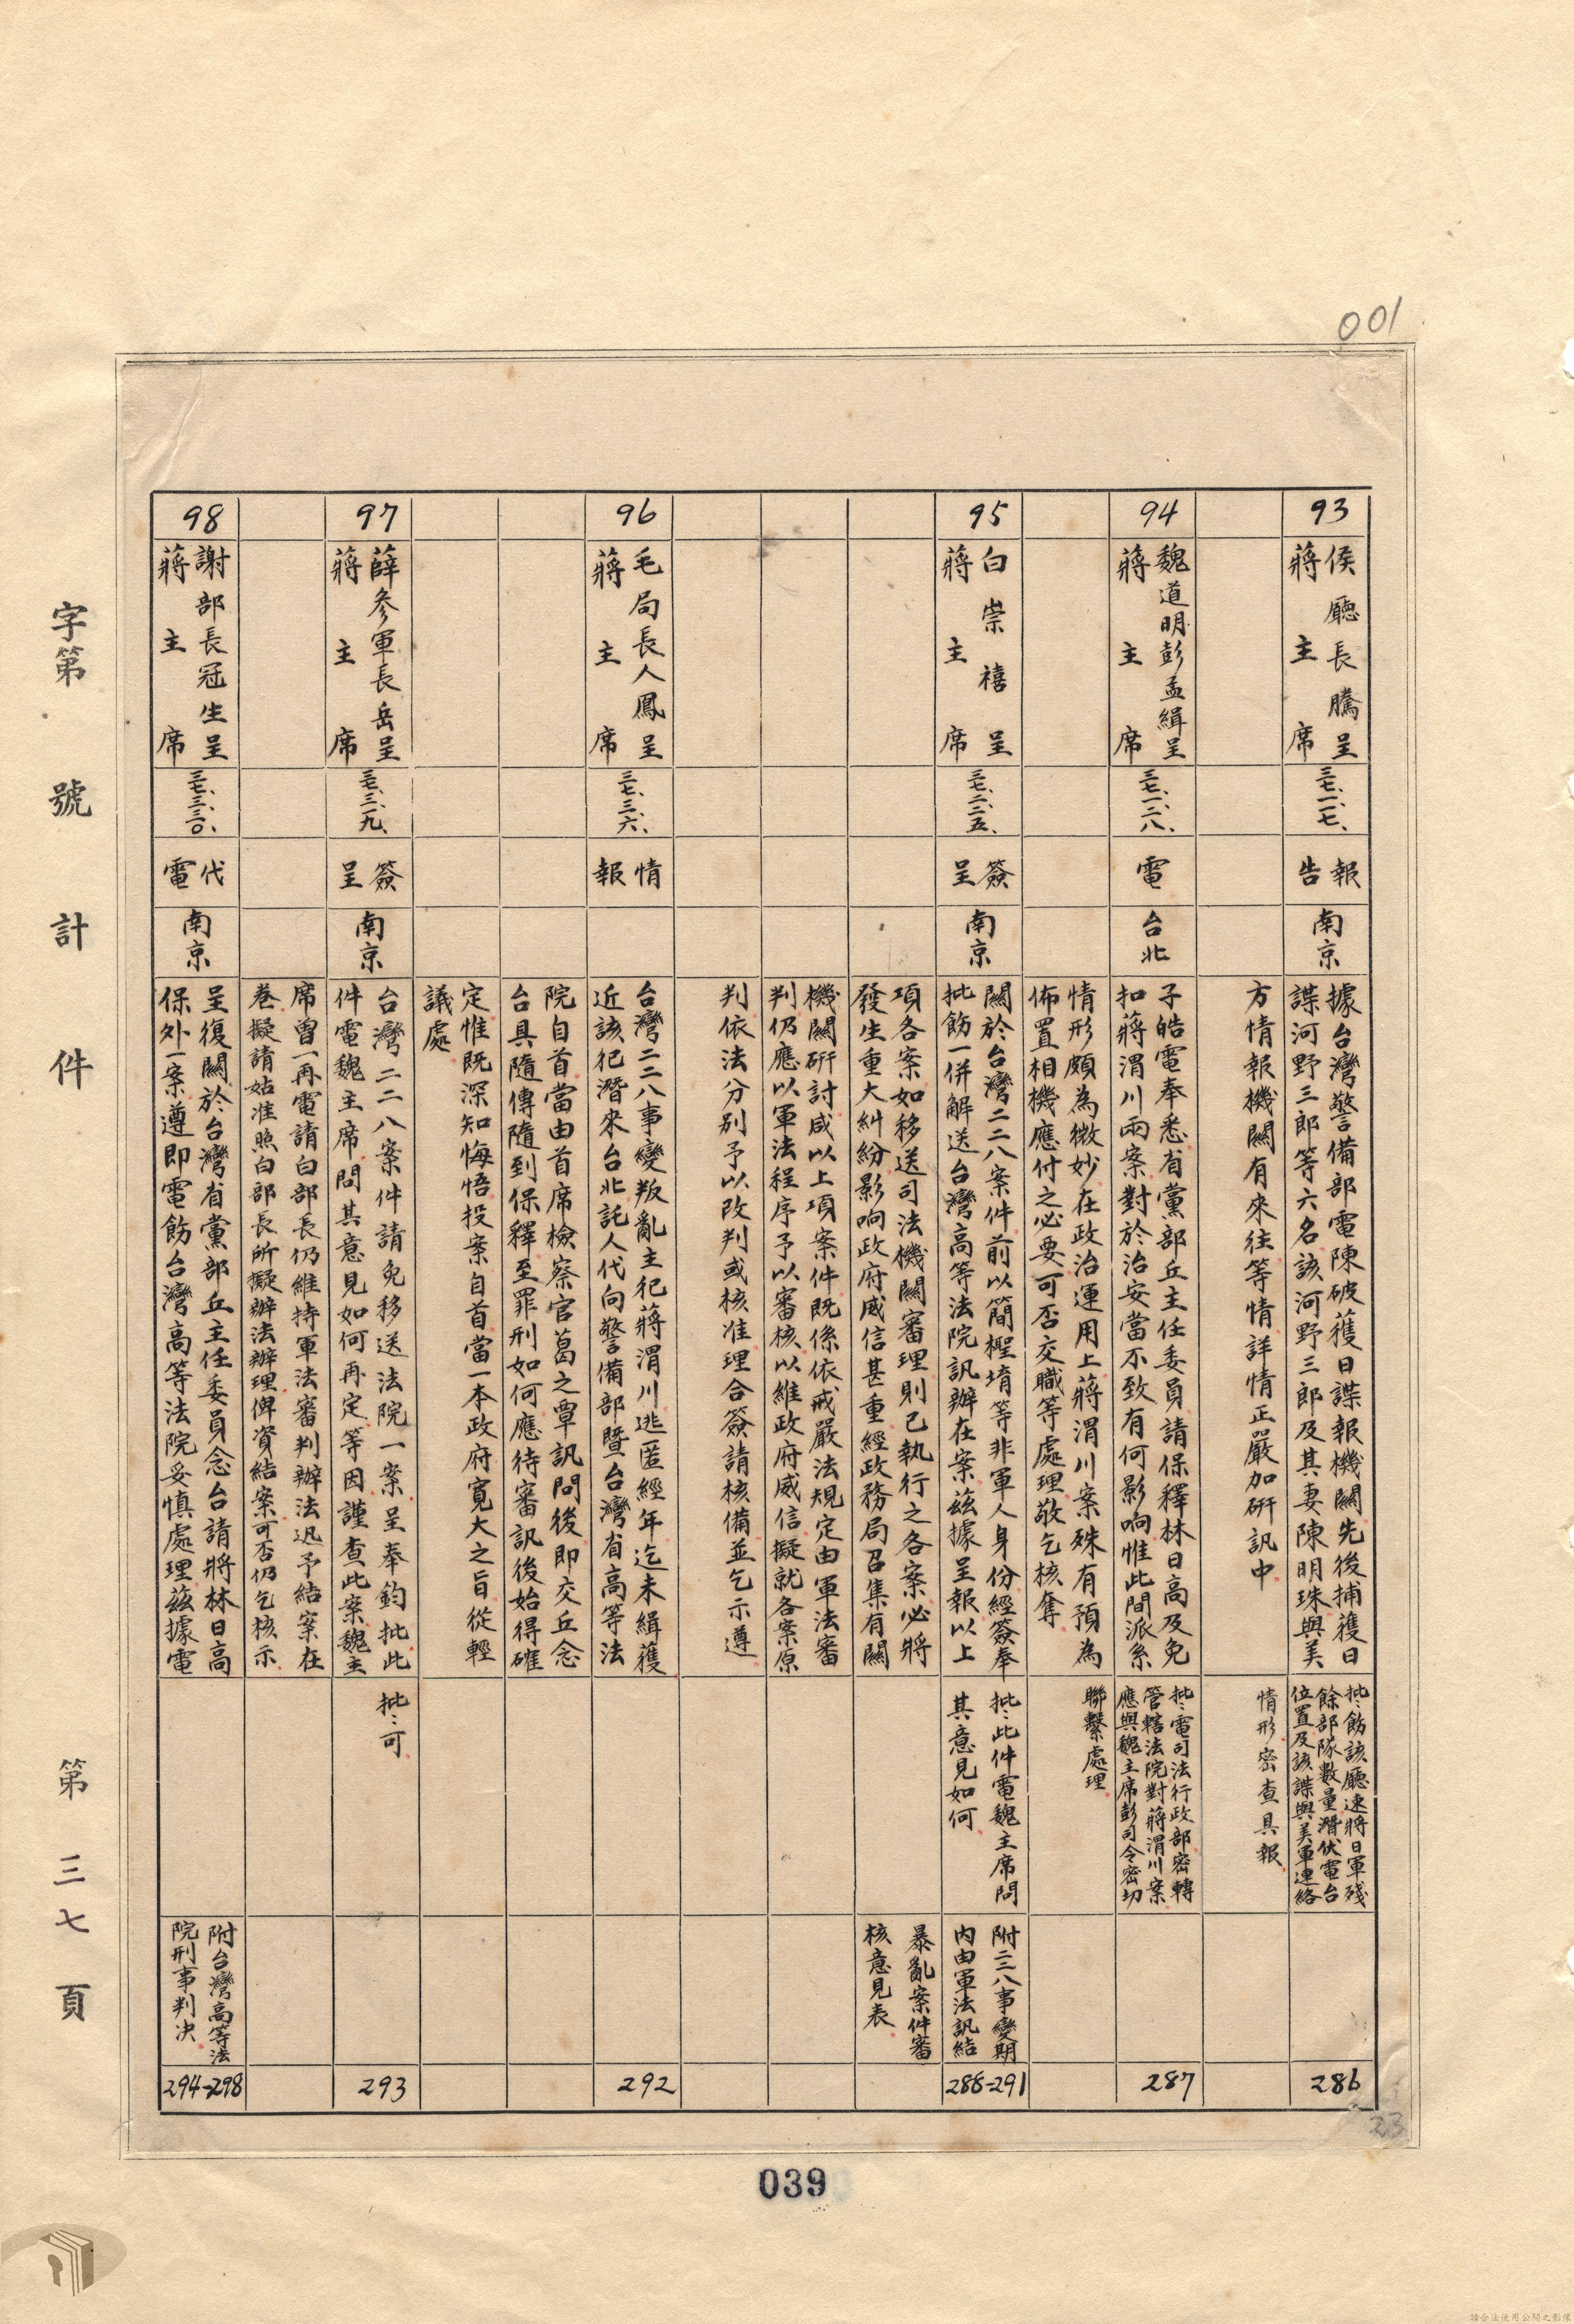 001
93
侯廳長騰呈
蔣主席
三七、一、一七、
報告
南京
據台灣警備部電陳破獲日諜報機關先後捕獲日
諜河野三郎等六名該河野三郎及其妻陳明珠與美
方情報機關有來往等情詳情正嚴加研訊中
批：飭該廳速將日軍殘
餘部隊數量潛伏電台
位置及該諜與美軍連絡
情形密查具報
286
94
魏道明彭孟緝呈
蔣主席
三七、一、二八、
電
台北
子皓電奉悉省黨部丘主任委員請保釋林日高及免
扣蔣渭川兩案對於治安當不致有何影响惟此間派系
情形頗為微妙在政治運用上蔣渭川案殊有預為
佈置相機應付之必要可否交職等處理敬乞核奪
批：電司法行政部密轉
管轄法院對蔣渭川案
應與魏主席彭司令密切
聯繫處理
287
95
白崇禧呈
蔣主席
三七、二、二五、
簽呈
南京
關於台灣二二八案件前以簡檉堉等非軍人身份經簽奉
批飭一併解送台灣高等法院訊辦在案茲據呈報以上
項各案如移送司法機關審理則已執行之各案必將
發生重大糾紛影响政府威信甚重經政務局召集有關
機關研討咸以上項案件既係依戒嚴法規定由軍法審
判仍應以軍法程序予以審核以維政府威信擬就各案原
判依法分別予以改判或核准理合簽請核備並乞示遵
批：此件電魏主席問
其意見如何
附二二八事變期
內由軍法訊結
暴亂案件審
核意見表
288-291
96
毛局長人鳳呈
蔣主席
三七、三、六、
情報
台灣二二八事變叛亂主犯蔣渭川逃匿經年迄未緝獲
近該犯潛來台北託人代向警備部暨台灣省高等法
院自首當由首席檢察官葛之覃訊問後即交丘念
台具隨傳隨到保釋至罪刑如何應待審訊後始得確
定惟既深知悔悟投案自首當一本政府寬大之旨從輕
議處
292
97
薛參軍長岳呈
蔣主席
三七、三、一九、
簽呈
南京
台灣二二八案件請免移送法院一案呈奉鈞批此
件電魏主席問其意見如何再定等因謹查此案魏主
席曾一再電請白部長仍維持軍法審判辦法迅予結案在
卷擬請姑准照白部長所擬辦法辦理俾資結案可否仍乞核示
批：可
293
98
謝部長冠生呈
蔣主席
三七、三、三〇、
代電
南京
呈復關於台灣省黨部丘主任委員念台請將林日高
保外一案遵即電飭台灣高等法院妥慎處理茲據電
附台灣高等法
院刑事判决
294-298
字第 號計 件 第三七頁
23
039
請合法使用公開之影像